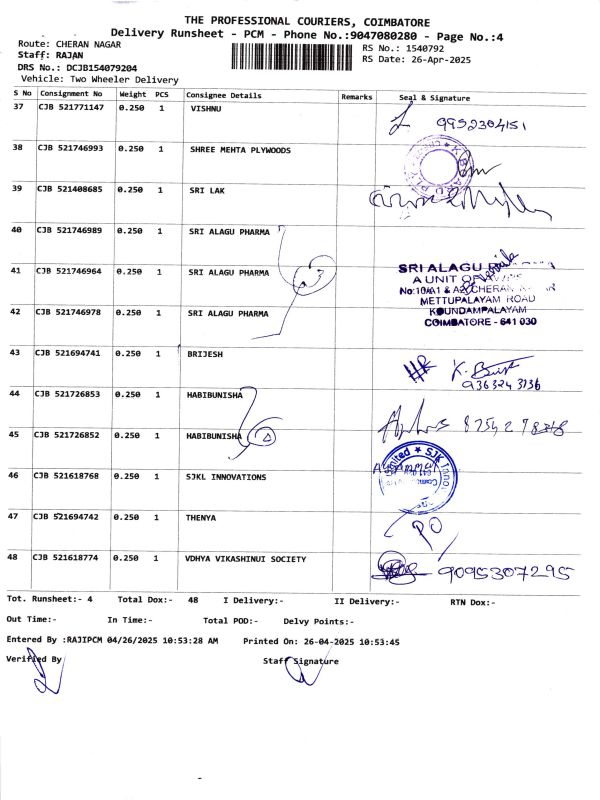 THE PROFESSIONAL COURIERS, COIMBATORE
Delivery Runsheet - PCM - Phone No.:9047080280 - Page No.:4
Route: CHERAN NAGAR RS No.: 1540792
Staff: RAJAN RS Date: 26-Apr-2025
DRS No.: DCJB154079204
Vehicle: Two Wheeler Delivery
S No Consignment No Weight PCS Consignee Details Remarks Seal & Signature
37 CJB 521771147 0.250 1 VISHNU 9952304151
38 CJB 521746993 0.250 1 SHREE MEHTA PLYWOODS
39 CJB 521408685 0.250 1 SRI LAK
40 CJB 521746989 0.250 1 SRI ALAGU PHARMA
41 CJB 521746964 0.250 1 SRI ALAGU PHARMA 3
SRI ALAGU
A UNIT OF
No:10/A1 & CHERAN
METTUPALAYAM ROAD
KOUNDAMPALAYAM
COIMBATORE - 641 030
42 CJB 521746978 0.250 1 SRI ALAGU PHARMA
43 CJB 521694741 0.250 1 BRIJESH
9363243136
44 CJB 521726853 0.250 1 HABIBUNISHA
45 CJB 521726852 0.250 1 HABIBUNISHA
46 CJB 521618768 0.250 1 SJKL INNOVATIONS
47 CJB 521694742 0.250 1 THENYA PO
48 CJB 521618774 0.250 1 VDHYA VIKASHINUI SOCIETY 9095307295
Tot. Runsheet:- 4 Total Dox:- 48 I Delivery:- II Delivery:- RTN Dox:-
Out Time:- In Time:- Total POD:- Delvy Points:-
Entered By :RAJIPCM 04/26/2025 10:53:28 AM Printed On: 26-04-2025 10:53:45
Verified By Staff Signature